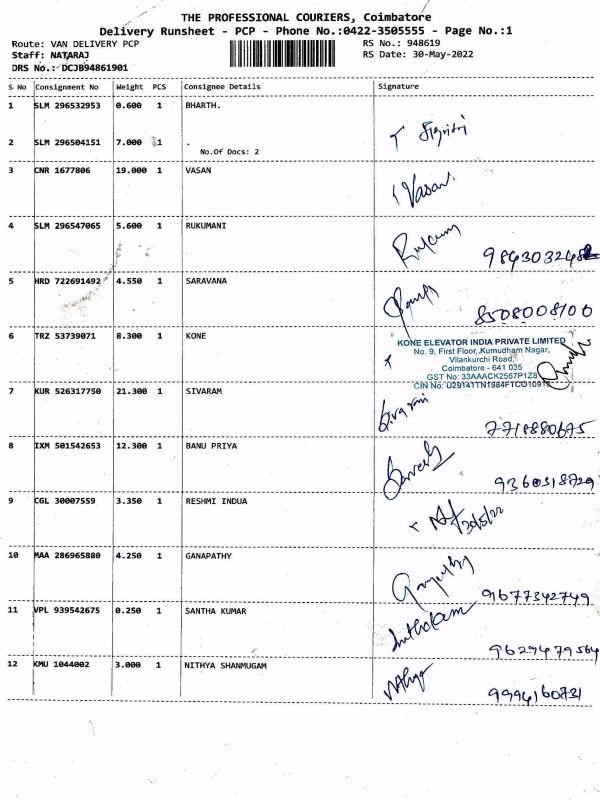 THE PROFESSIONAL COURIERS, Coimbatore
Delivery Runsheet - PCP - Phone No.:0422-3505555 - Page No.:1
Route: VAN DELIVERY PCP RS No.: 948619
Staff: NATARAJ RS Date: 30-May-2022
DRS No.: DCJB94861901
S No Consignment No Weight PCS Consignee Details Signature
1 SLM 296532953 0.600 1 BHARTH.
2 SLM 296504151 7.000 1 .
No.Of Docs: 2
3 CNR 1677806 19.000 1 VASAN
Vasan
4 SLM 296547065 5.600 1 RUKUMANI
5 HRD 722691492 4.550 1 SARAVANA
8508008100
6 TRZ 53739071 8.300 1 KONE
KONE ELEVATOR INDIA PRIVATE LIMITED
No. 9, First Floor, Kumudham Nagar,
Vilankurchi Road,
Coimbatore - 641 035
GST No: 33AAACK2567P1Z8
CIN No: U29141TN1984FTCO1091
7 KUR 526317750 21.300 1 SIVARAM
7718880675
8 IXM 501542653 12.300 1 BANU PRIYA
9360318729
9 CGL 30007559 3.350 1 RESHMI INDUA
30/5/22
10 MAA 286965880 4.250 1 GANAPATHY
9677342749
11 VPL 939542675 0.250 1 SANTHA KUMAR
9629479564
12 KMU 1044002 3.000 1 NITHYA SHANMUGAM
9994160731